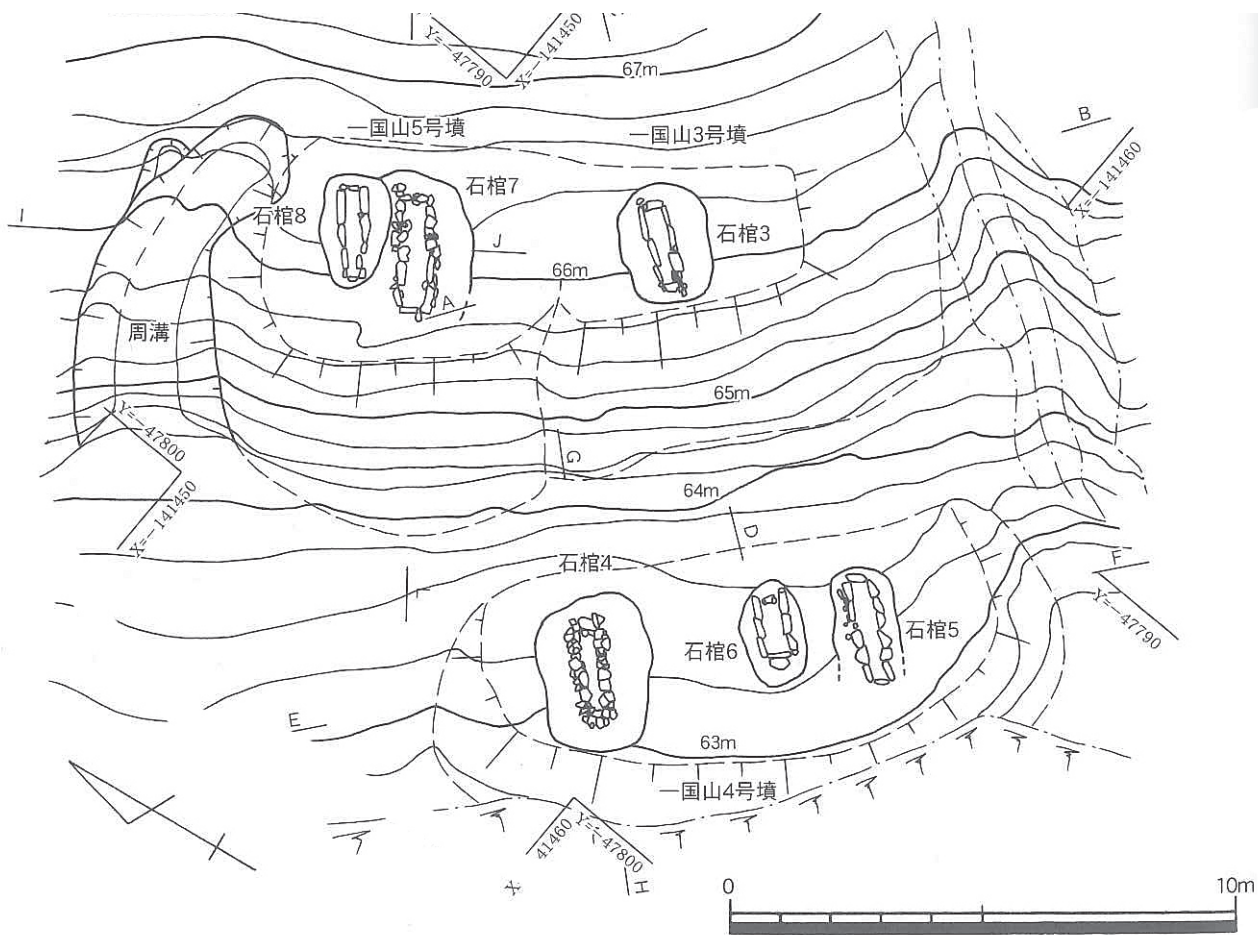 Y=-47790
X=-141450
67m
一国山5号墳
一国山3号墳
B
X=-141460
石棺7
石棺8
石棺3
I
J
66m
A
周溝
65m
Y=-47800
X=-141450
G
64m
D
石棺4
F
Y=-47790
石棺6
石棺5
E
63m
一国山4号墳
41460
X
Y=-47800
H
0
10m